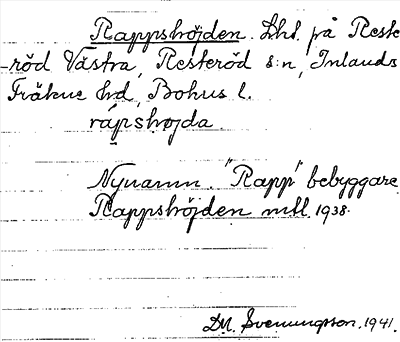 Rappshöjden. Lht. på Reste
-röd Västra, Resteröd s:n, Inlands
Fräkne hd, Bohus l.
rápshöjda.
Nynamn. "Rapp" bebyggare.
Rappshöjden mtl. 1938.
DM. Svenungsson. 1941.